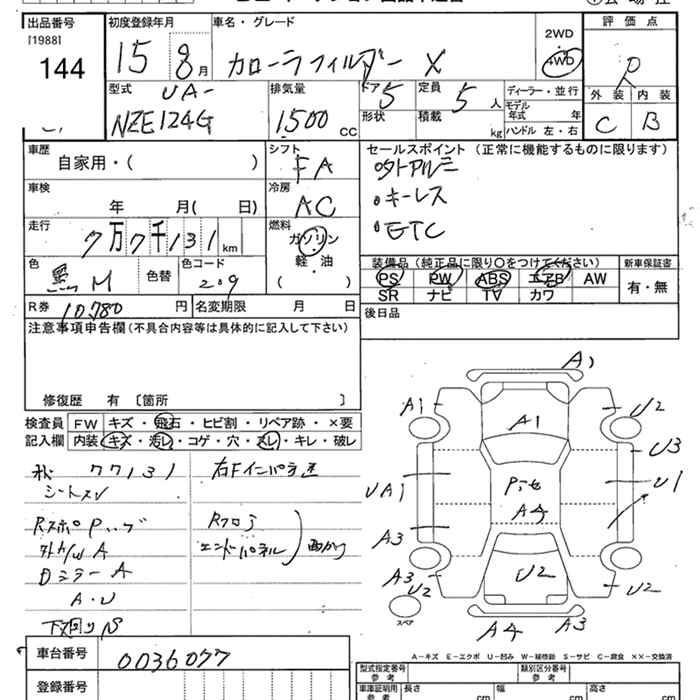 出品番号
[1988]
144
初度登録年月
15 8月
車名・グレード
カローラフィルダー X
2WD
4WD
評価点
R
外装 内装
C B
型式
UA-
NZE124G
排気量
1500 CC
ドア 5
形状
定員 5 人
積載 kg
ディーラー・並行
モデル年式 年
ハンドル 左・右
車歴
自家用・( )
シフト
FA
セールスポイント (正常に機能するものに限ります)
・外アルミ
・キーレス
・ETC
車検
年 月( 日)
冷房
AC
走行
7万7千131 km
燃料
ガソリン
軽・油
( )
色
黒M
色替
色コード
209
装備品 (純正品に限り〇をつけてください)
PS PW ABS エアB AW
SR ナビ TV カワ
新車保証書
有・無
R券 10,780 円
名変期限 月 日
後日品
注意事項申告欄 (不具合内容等は具体的に記入して下さい)
修復歴 有 〔箇所 〕
検査員
記入欄
FW キズ・飛石・ヒビ割・リペア跡・×要
内装 キズ・汚レ・コゲ・穴・スレ・キレ・破レ
77131
右Fインパネ
シート
A
Dミラー A
A・U
下廻りS
Rフロア
エンドパネル
曲がり
A1
A1
U2
A1
U3
UA1
U1
A4
A3
A3
U2
U2
U2
スペア
A4
A3
A-キズ E-エクボ U-凹み W-補修跡 S-サビ C-腐食 XX-交換済
車台番号
0036077
登録番号
型式指定番号
参考
類別区分番号
参考
車庫証明用
参考
長さ cm
幅 cm
高さ cm